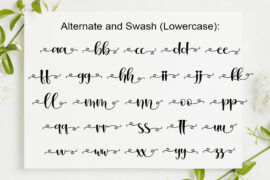 Alternate and Swash (Lowercase):
aa bb cc dd ee
ff gg hh ii jj kk
ll mm nn oo pp
qq rr ss tt uu
vv ww xx yy zz